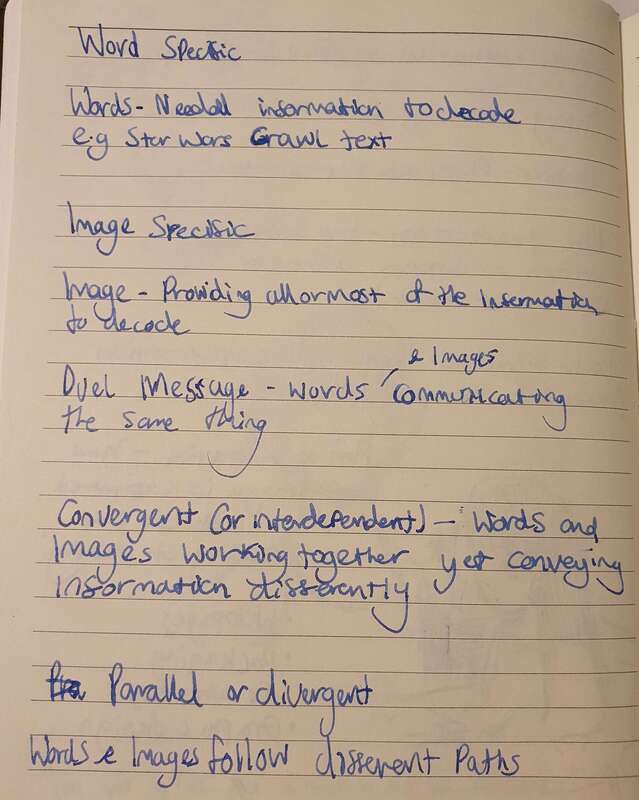 Word Specific
Words - Needall information to decode
e.g Star Wars Crawl text
Image Specific
Image - Providing all or most of the Information
to decode
& Images
Duel Message - words communicating
the same thing
Convergent (or interdependent) - Words and
Images working together yet conveying
Information differently
Parallel or divergent
Words & Images follow different Paths